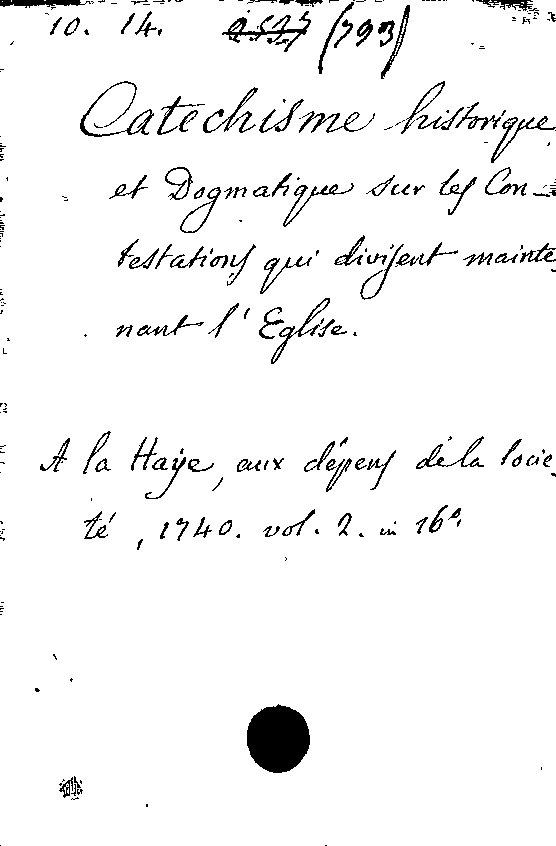 10. 14. 2537 (793)
Catechisme historique
et Dogmatique sur les Con-
testations qui divisent mainte
nant l'Eglise.
A la Haÿe, aux dépens de la Socie
té, 1740. vol. 2. in 16°.